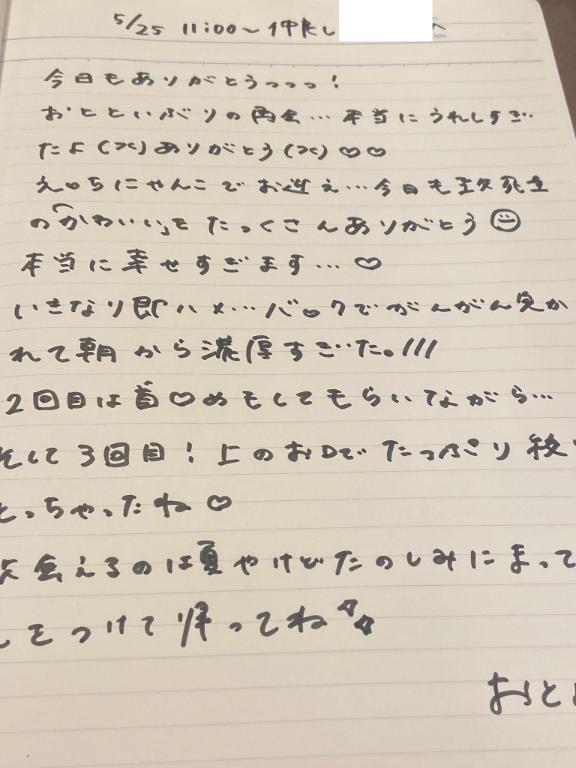 5/25 11:00〜 仲良し へ
今日もありがとうっっっ!
おとといぶりの再会... 本当にうれしすぎ
たよ ありがとう ♡♡
えっちにゃんこでお迎え...今日も
の「かわいい」をたっくさんありがとう☺
本当に幸せすぎます...♡
いきなり即ハメ...バックでがんがん突か
れて朝から濃厚すぎた。///
2回目は首♡めもしてもらいながら...
そして3回目!上のお口でたっぷり
とっちゃったね♡
会えるのは夏やけどたのしみにまって
をつけて帰ってね